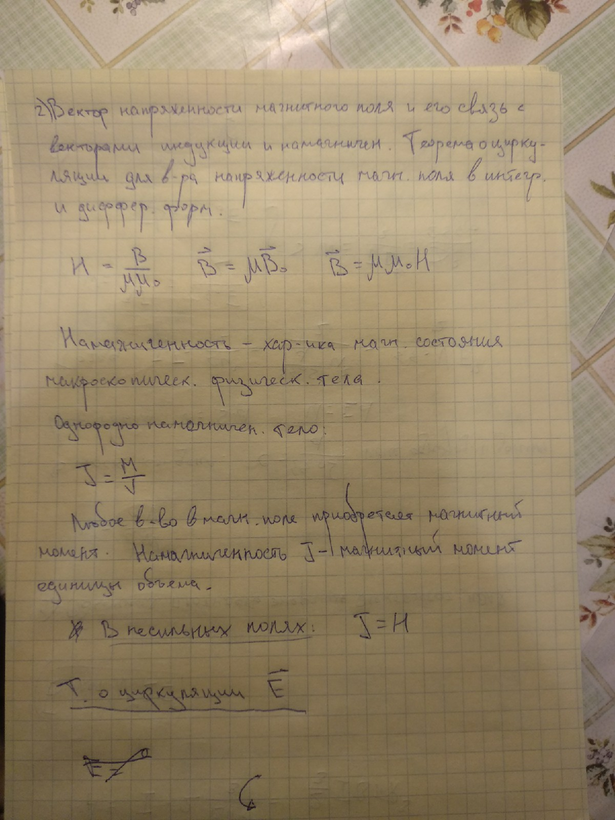 2) Вектор напряженности магнитного поля и его связь с
векторами индукции и намагничен. Теорема о цирку-
ляции для в-ра напряженности магн. поля в интегр.
и диффер. форм.
H = B/μμ₀ B⃗ = μB⃗₀ B⃗ = μμ₀H
Намагниченность – хар-ика магн. состояния
макроскопическ. физическ. тела.
Однородно намагничен. тело:
J = M/V
Любое в-во в магн. поле приобретает магнитный
момент. Намагниченность J – магнитный момент
единицы объема.
В несильных полях: J = H
Т. о циркуляции E⃗